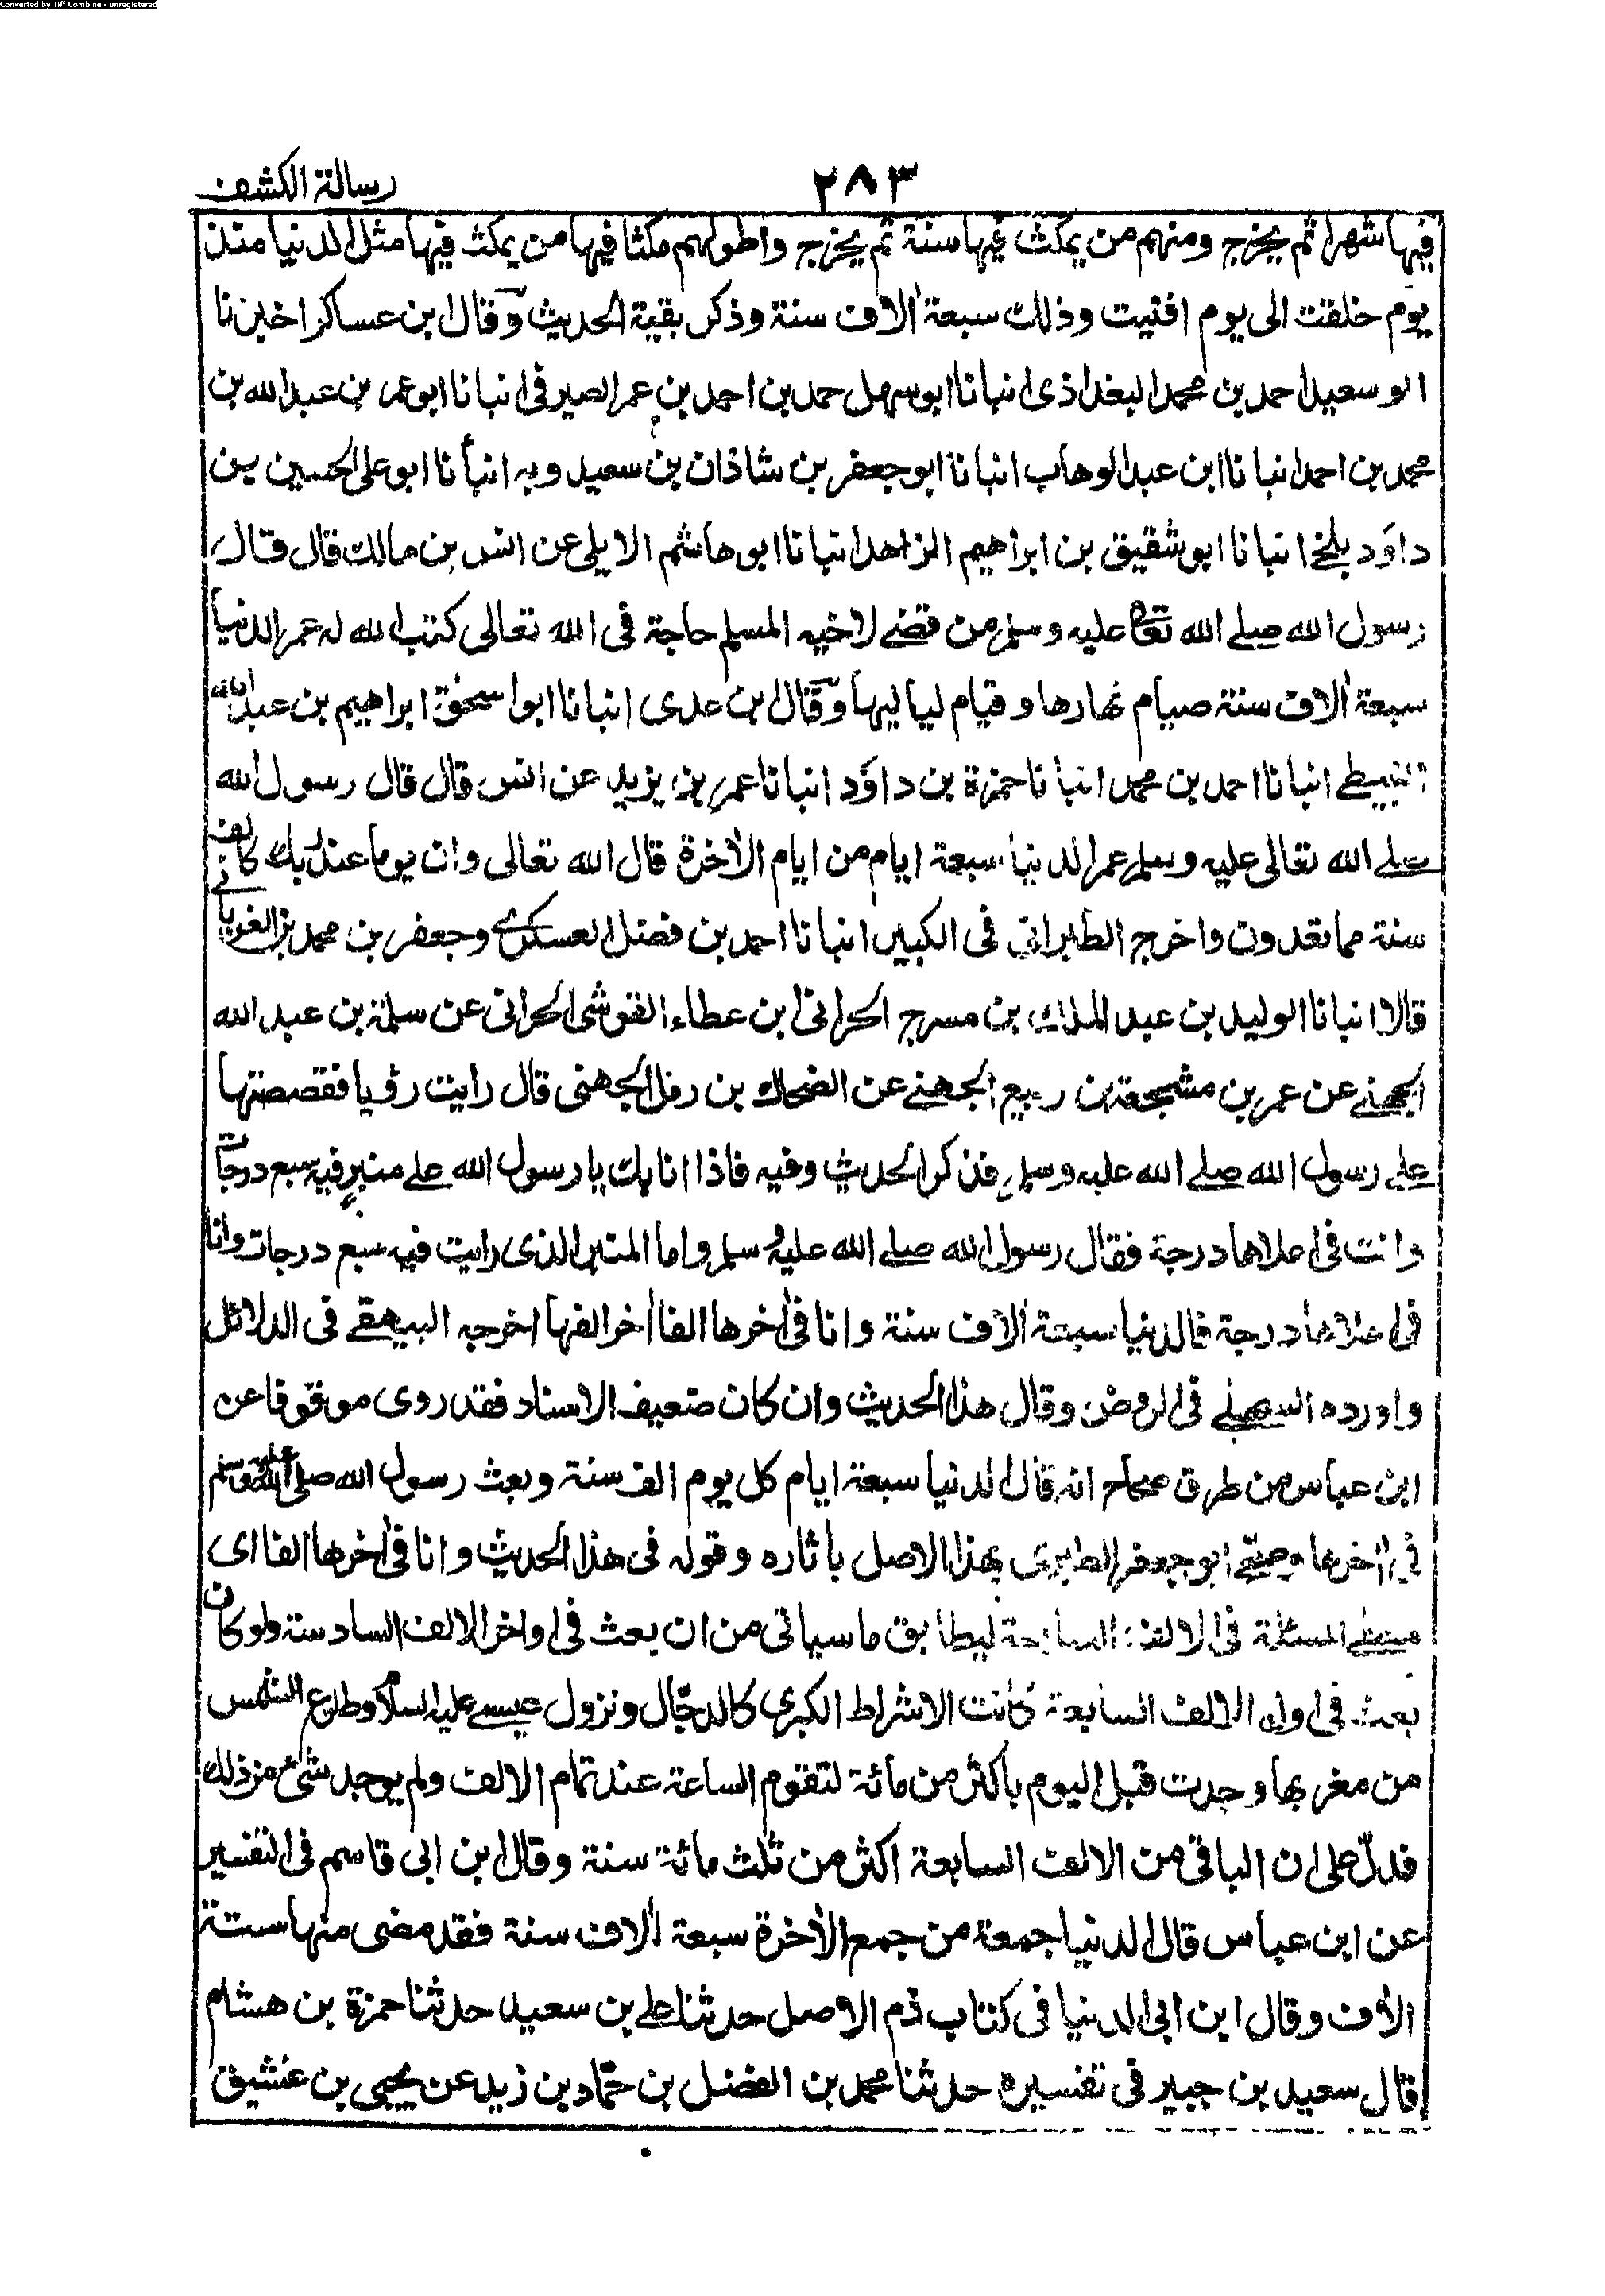 Converted by Tiff Combine - unregistered
٢٨٣ رسالة الكشف
فيها شهرا ثم يخرج ومنهم من يمكث فيها سنة ثم يخرج واطولهم مكثا فيها من يمكث فيها مثل الدنيا منذ
يوم خلقت الى يوم افنيت وذلك سبعة اٰلاف سنة وذكر بقية الحديث وقال ابن عساكر اخبرنا
ابو سعيد احمد بن محمد البغداذى انبانا ابو سهل حمد بن احمد بن عمر الصيرفى انبانا ابو عمر بن عبد الله بن
محمد بن احمد انبانا ابن عبد الوهاب انبانا ابو جعفر بن شاذان بن سعيد وبه انبأنا ابو على الحسين بن
داؤد بلخ انبانا ابو شقيق بن ابراهيم الزاهد انبانا ابو هاشم الايلى عن انس بن مالك قال قال
رسول الله صلے الله تعالى عليه وسلم من قضے لاخيه المسلم حاجة فى الله تعالى كتب الله له عمر الدنيا
سبعة اٰلاف سنة صيام نهارها وقيام لياليها وقال ابن عدى انبانا ابو اسحٰق ابراهيم بن عبد الله
النبيطے انبانا احمد بن محمد انبانا حمزة بن داؤد انبانا عمر بن يزيد عن انس قال قال رسول الله
صلے الله تعالى عليه وسلم عمر الدنيا سبعة ايام من ايام الاٰخرة قال الله تعالى وان يوما عند ربك كالف
سنة مما تعدون واخرج الطبرانى فى الكبير انبانا احمد بن فضل العسكرے وجعفر بن محمد بن الفريابے
قالا انبانا الوليد بن عبد الملك بن مسرج الحرانى ابن عطاء القوشى الحرانى عن سلمة بن عبد الله
الجهنے عن عمر بن مشجعة بن ربيع الجهنے عن الضحاك بن رمل الجهنى قال رايت رؤيا فقصصتها
علے رسول الله صلے الله عليه وسلم فذكر الحديث وفيه فاذا انا بك يا رسول الله علے منبر فيه سبع درجات
وانت فى اعلاها درجة فقال رسول الله صلے الله عليه وسلم واما المنبر الذى رايت فيه سبع درجات وانا
فى اعلاها درجة فالدنيا سبعة اٰلاف سنة وانا فى اٰخرها الفا اٰخر الفها اخرجه البيهقے فى الدلائل
واورده السهيلے فى الروض وقال هذا الحديث وان كان ضعيف الاسناد فقد روى موقوفا عن
ابن عباس من طرق صحاح انه قال الدنيا سبعة ايام كل يوم الف سنة وبعث رسول الله صلى الله عليه وسلم
فى اٰخرها وصحح ابو جعفر الطبرى بهذا الاصل باٰثاره وقوله فى هذا الحديث وانا فى اٰخرها الفا اى
المسئلة فى الالف السابعة ليطابق ما سياتى من ان بعث فى اواخر الالف السادسة ولو كان
بعث فى اول الالف السابعة كانت الاشراط الكبرى كالدجّال ونزول عيسے عليه السلام وطلوع الشمس
من مغربها وجدت قبل اليوم باكثر من مائة لتقوم الساعة عند تمام الالف ولم يوجد شئ من ذلك
فدلّ على ان الباقى من الالف السابعة اكثر من ثلث مائة سنة وقال ابن ابى قاسم فى التفسير
عن ابن عباس قال الدنيا جمعة من جمع الاٰخرة سبعة اٰلاف سنة فقد مضى منها ستة
اٰلاف وقال ابن ابى الدنيا فى كتاب ذم الامل حدثنا علے بن سعيد حدثنا حمزة بن هشام
قال سعيد بن جبير فى تفسيره حدثنا محمد بن الفضل بن حمّاد بن زيد عن يحيى بن عشيق